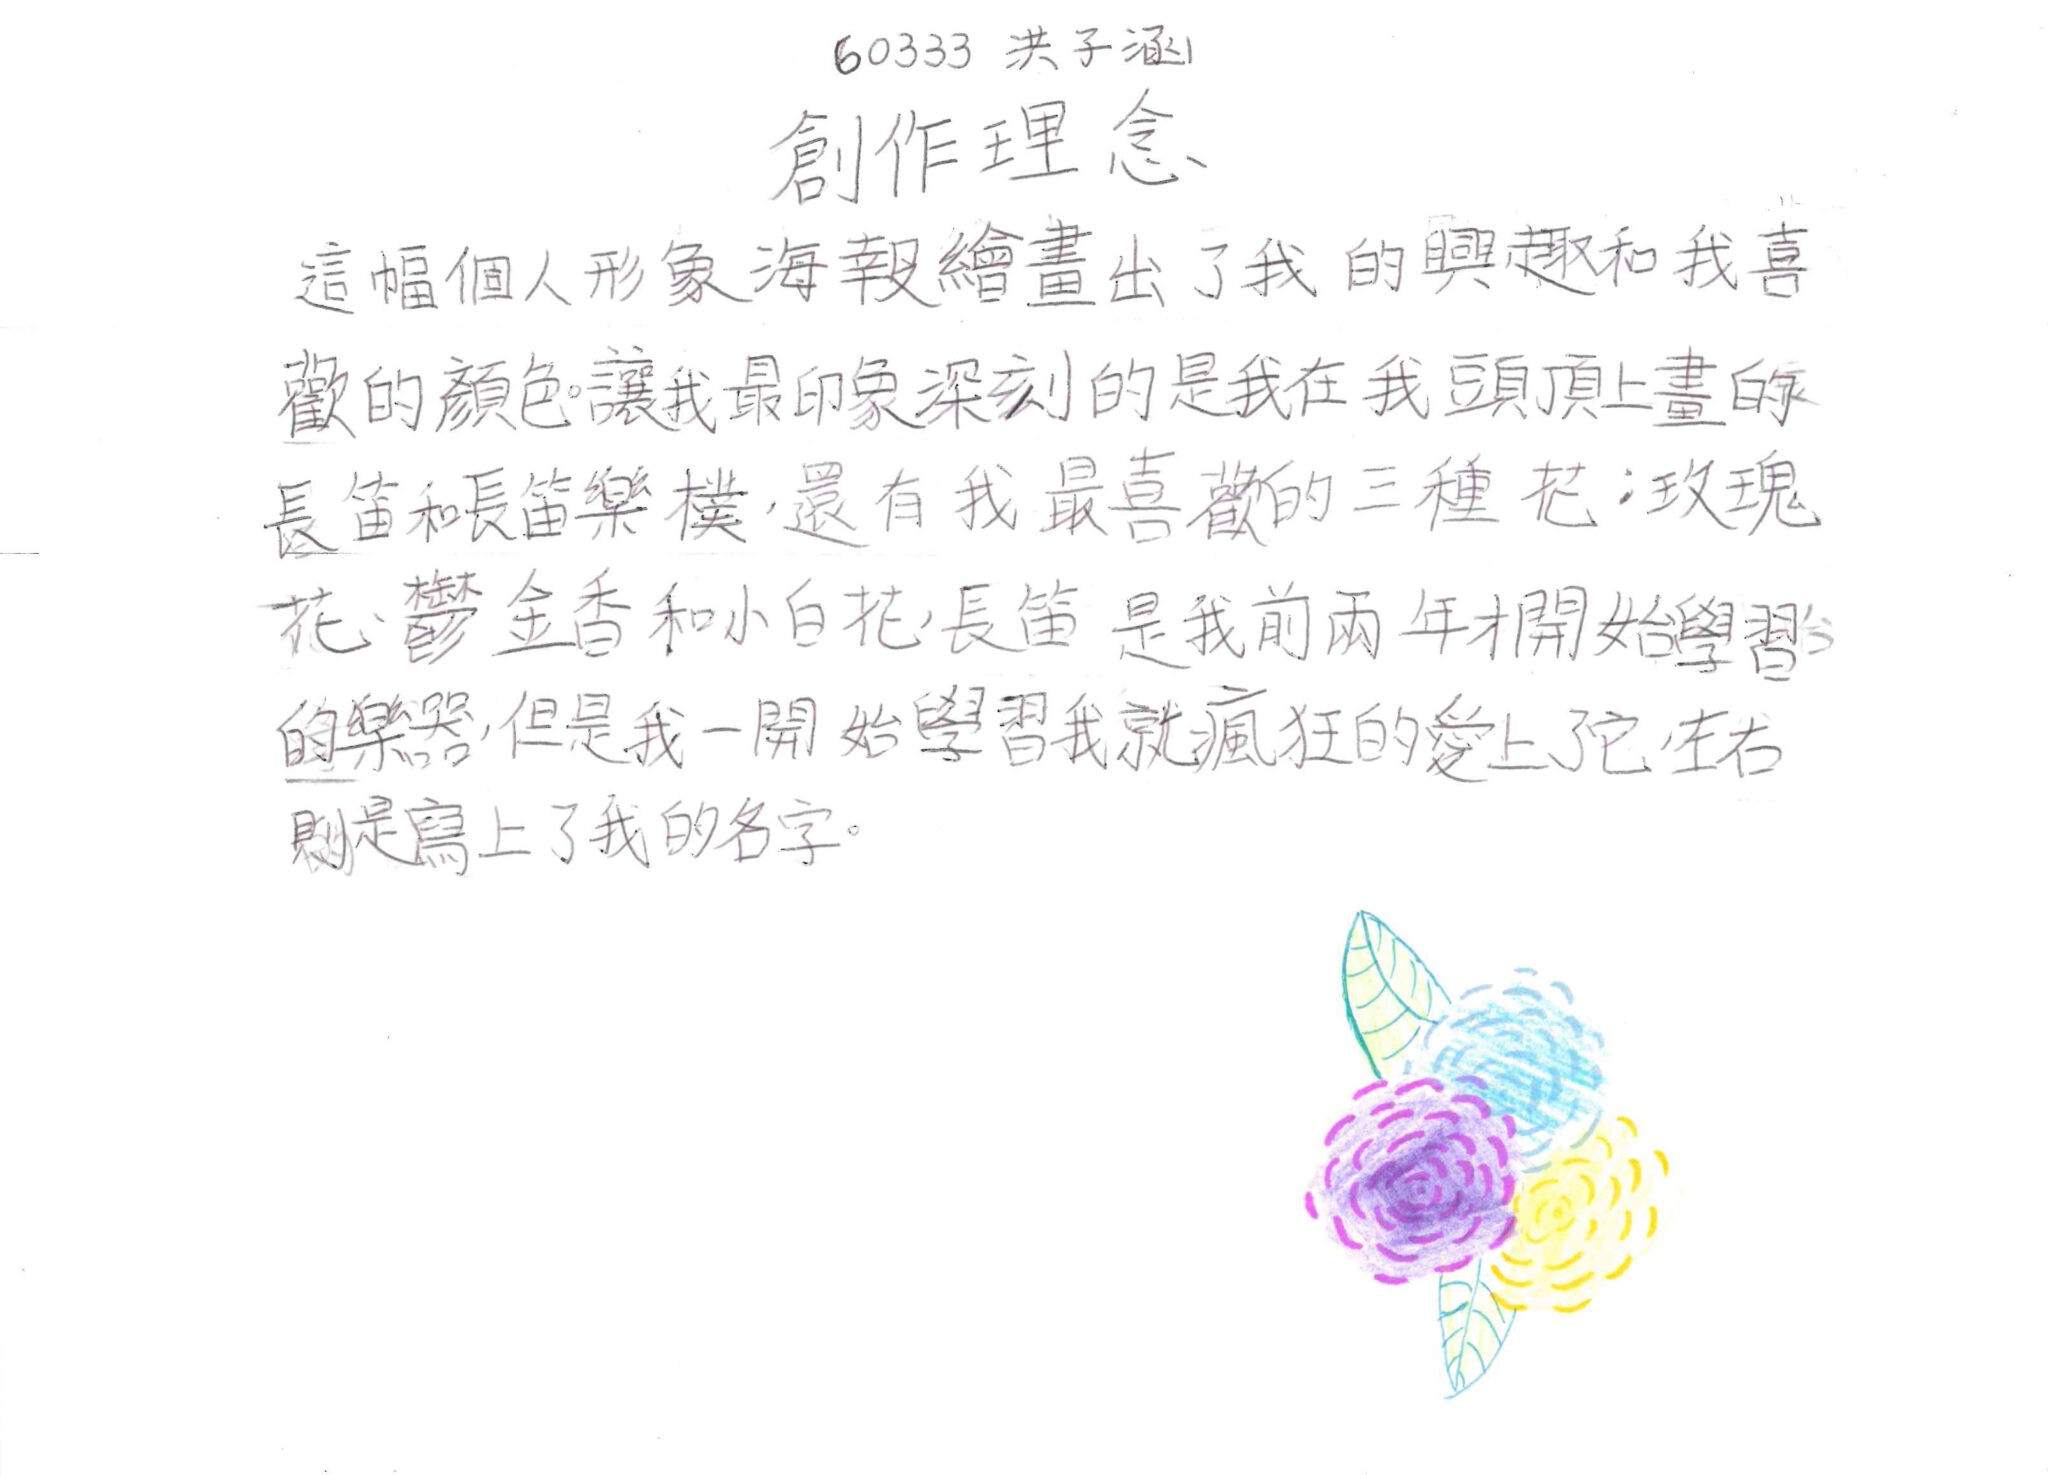 60333 洪子涵
創作理念
這幅個人形象海報繪畫出了我的興趣和我喜
歡的顏色。讓我最印象深刻的是我在我頭頂上畫的
長笛和長笛樂樸，還有我最喜歡的三種花；玫瑰
花、鬱金香和小白花，長笛是我前兩年才開始學習
的樂器，但是我一開始學習我就瘋狂的愛上了它，左右
則是寫上了我的名字。